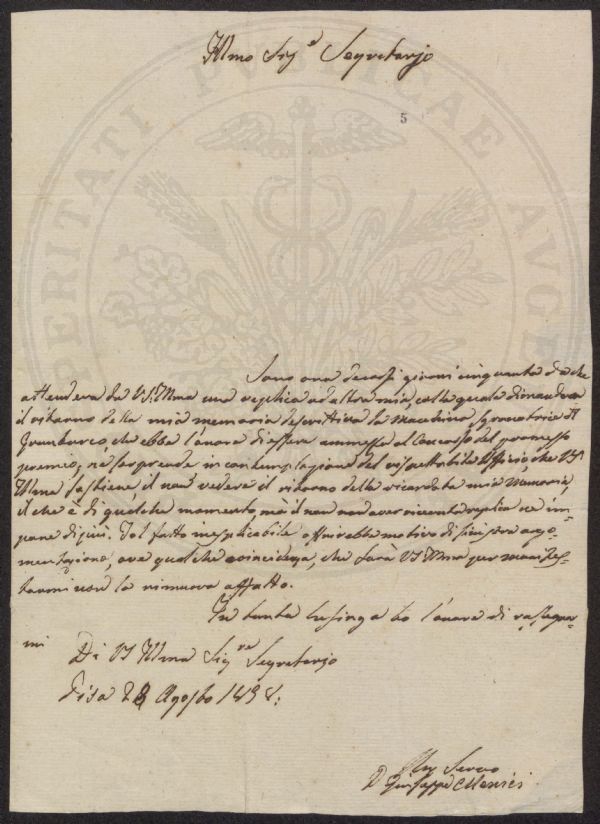 Illmo Sig.e Segretario
5
PROSPERITATI PVBLICAE AVGE
Sono ora decorsi giorni cinquanta da che
attendeva da VS: Illma una replica ad altra mia, colla quale dimandava
il ritorno della mia memoria descrittiva la Macchina Sgranatrice il
Granturco, che ebbe l'onore di essere ammessa al Concorso del promesso
premio; nè sorprende in contemplazione del rispettabile Uffizio, che VS
Illma sostiene il non vedere il ritorno della ricordata mia Memoria,
il che è di qualche momento, mà il non aver ricevuto replica ne im-
pone di più. Tal fatto inesplicabile offrirebbe motivo di sinistra argo-
mentazione, ove qualche coincidenza, che sarà VS Illma per manifes-
tarmi non la rimuova affatto.
In tanta lusinga ho l'onore di rassegnar-
mi
Di VS Illma Sig.re Segretario
Pisa 28 Agosto 1838:
Servo
D Giuseppe